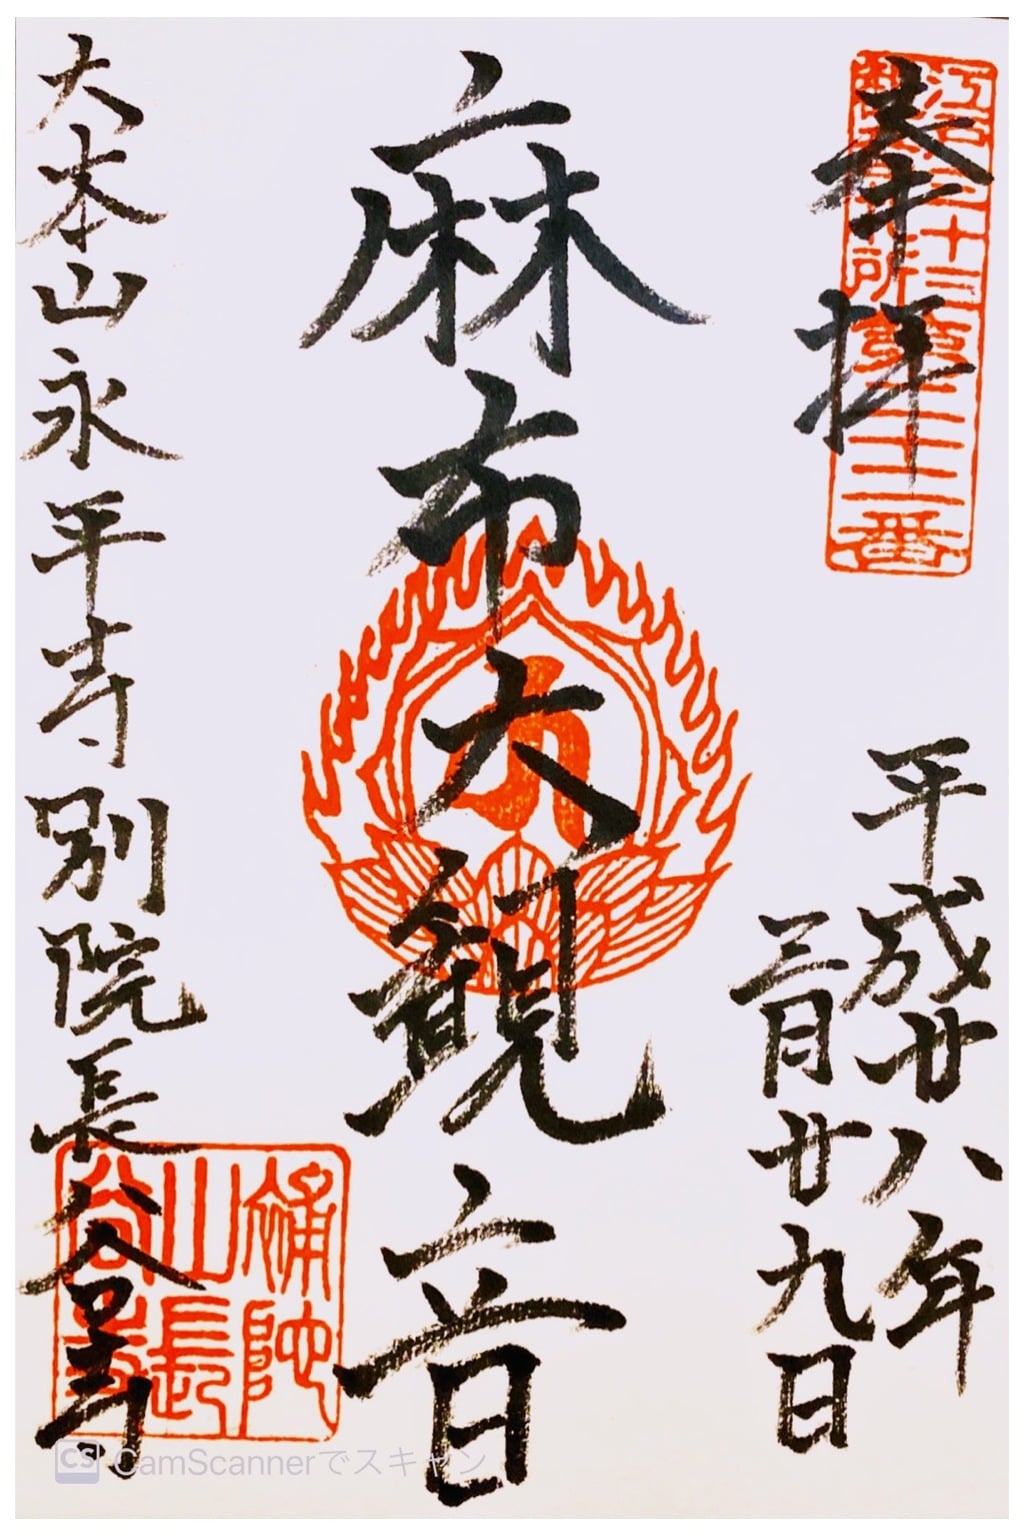 奉拝
江戸三十三
観音札所第二十二番
平成廿八年
三月廿九日
麻布大観音
大本山永平寺別院長谷寺
補陀
山長
谷寺
CS CamScannerでスキャン